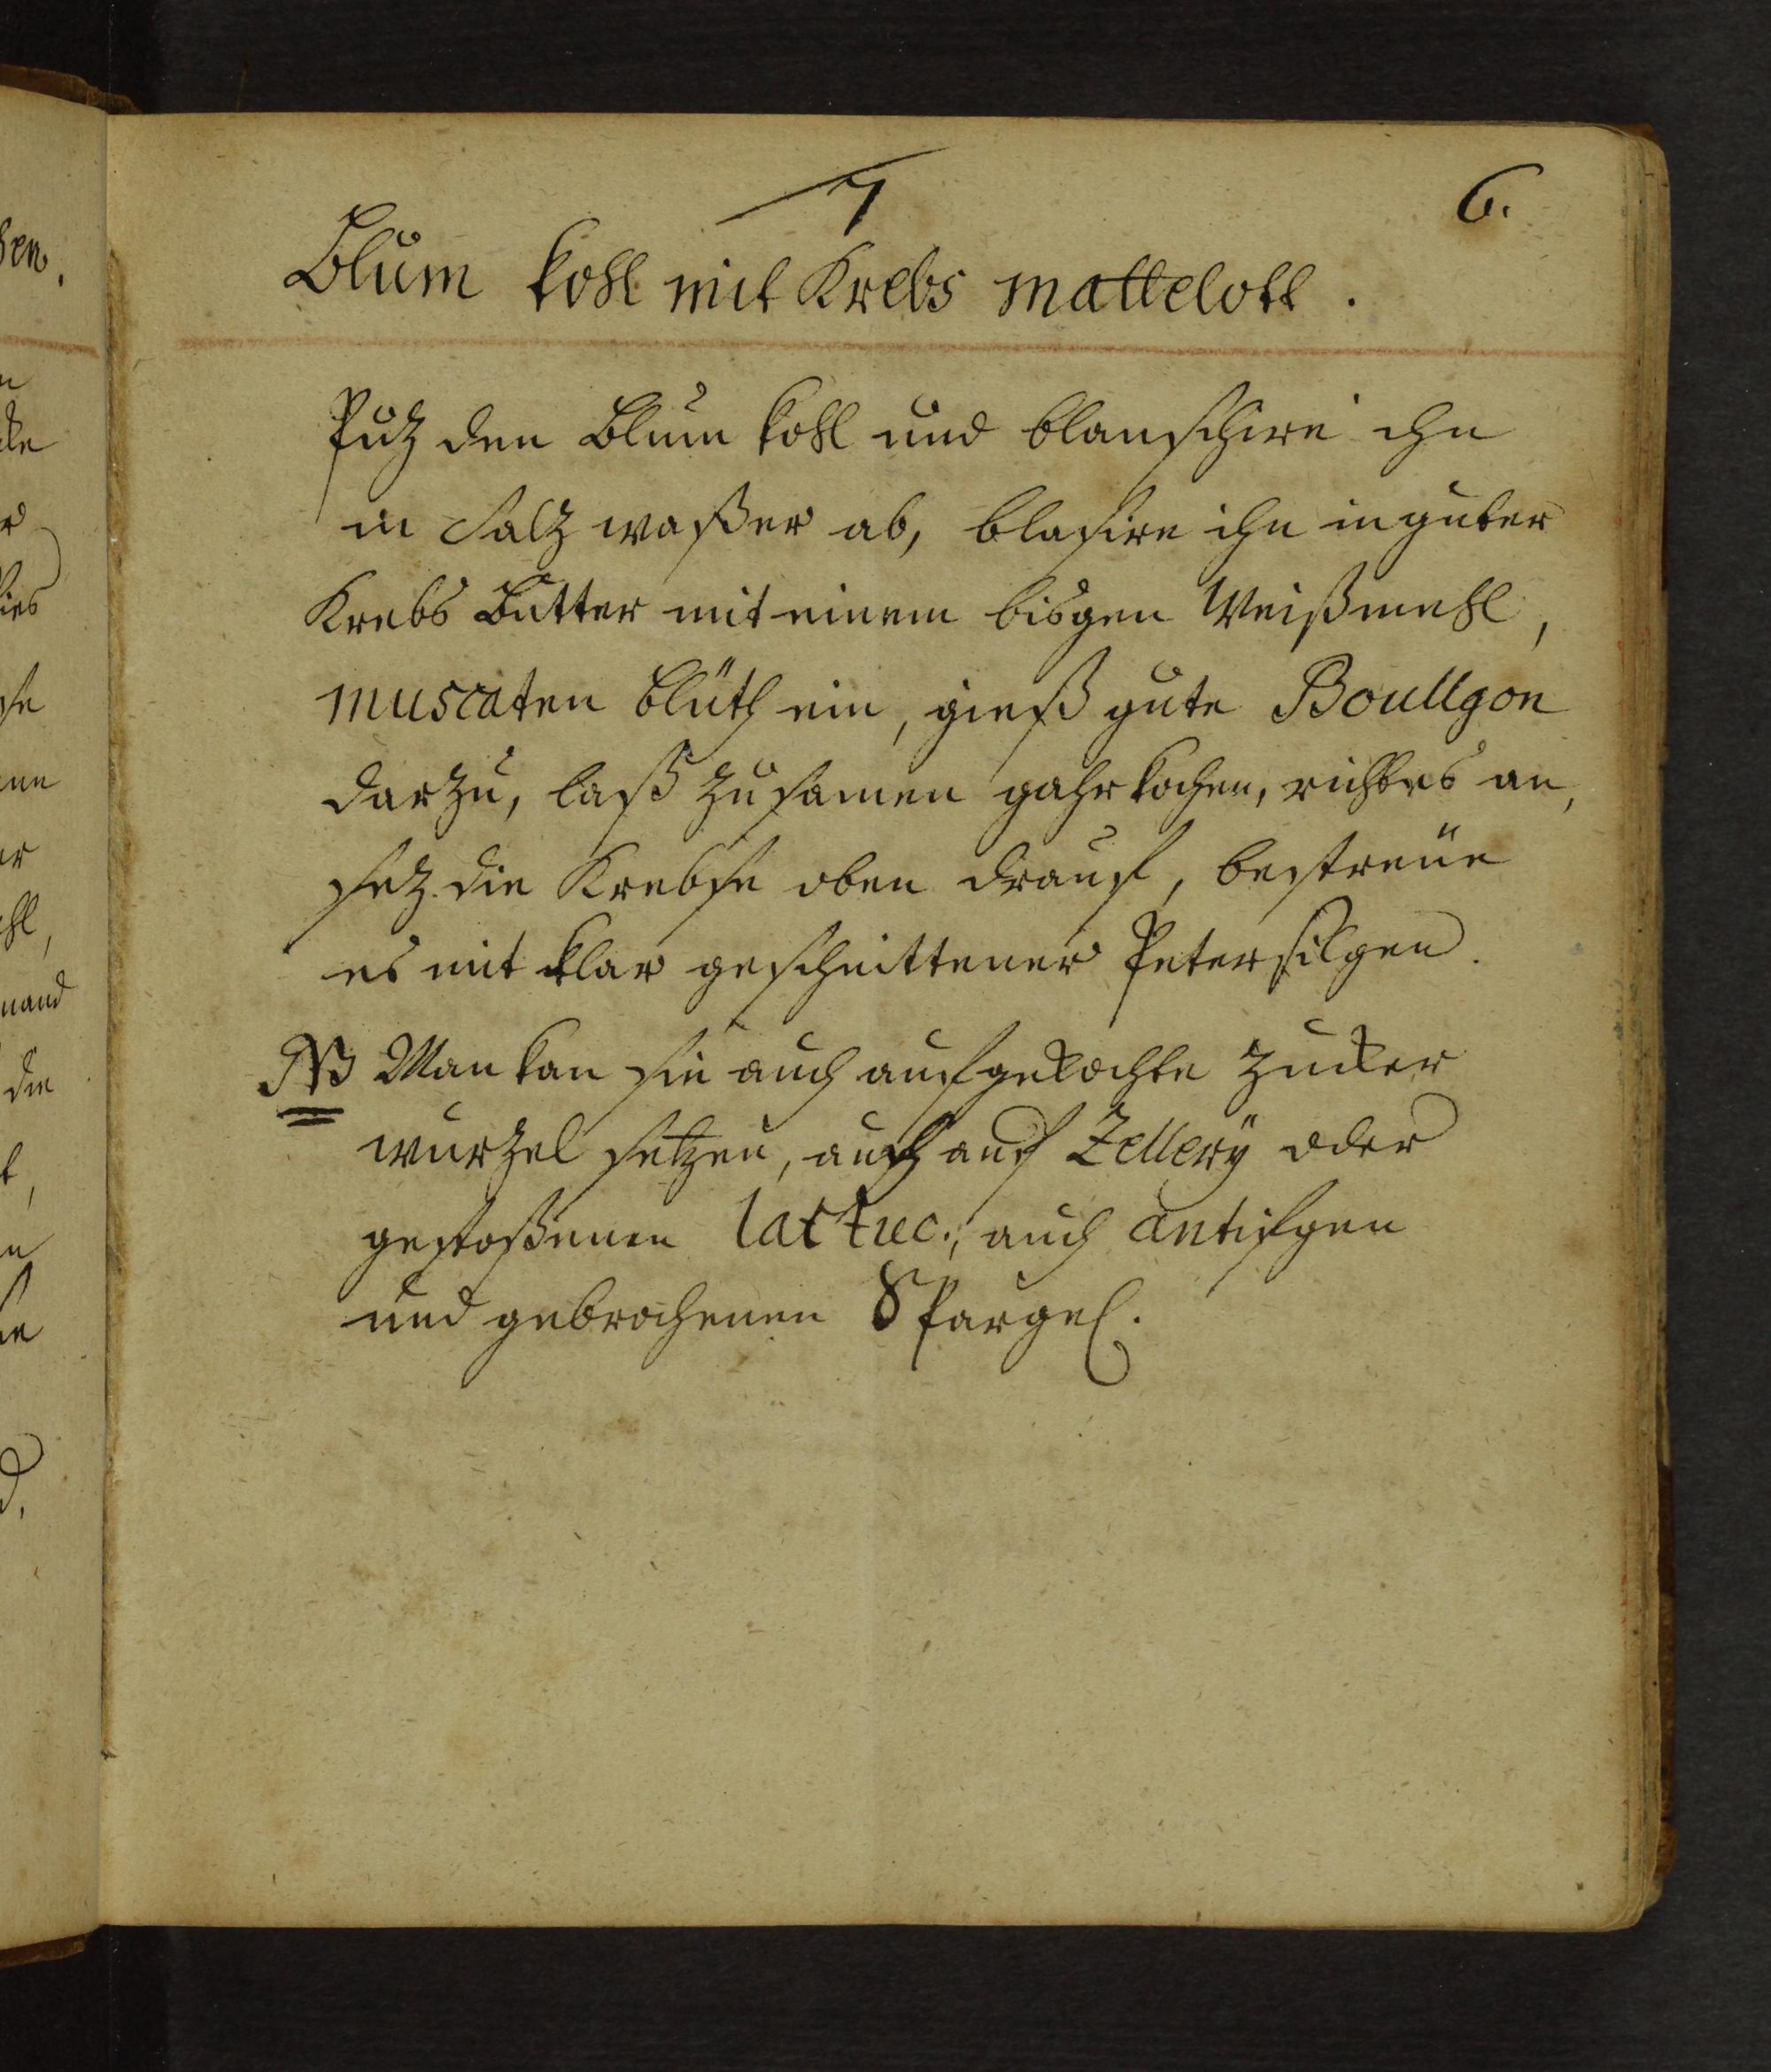 7
6.
Blum kohl mit Krebs mattelott.
Putz den Blum kohl und blanschire ihn
in Saltz waßer ab, blasire ihn in guter
Krebs Butter mit einem bisgen Weißmehl,
muscaten blüth ein, gieß gute Boullgon
darzu, laß zusamen gahr kochen, richtes an,
setz die Krebse oben drauf, bestreüe
es mit klar geschnittener Petersilgen.
NB Man kan sie auch auf gekochte Zucker
wurzel setzen, auch auf Zellery oder
gestoßenen lattuc., auch antifgen
und gebrochenen Spargel.